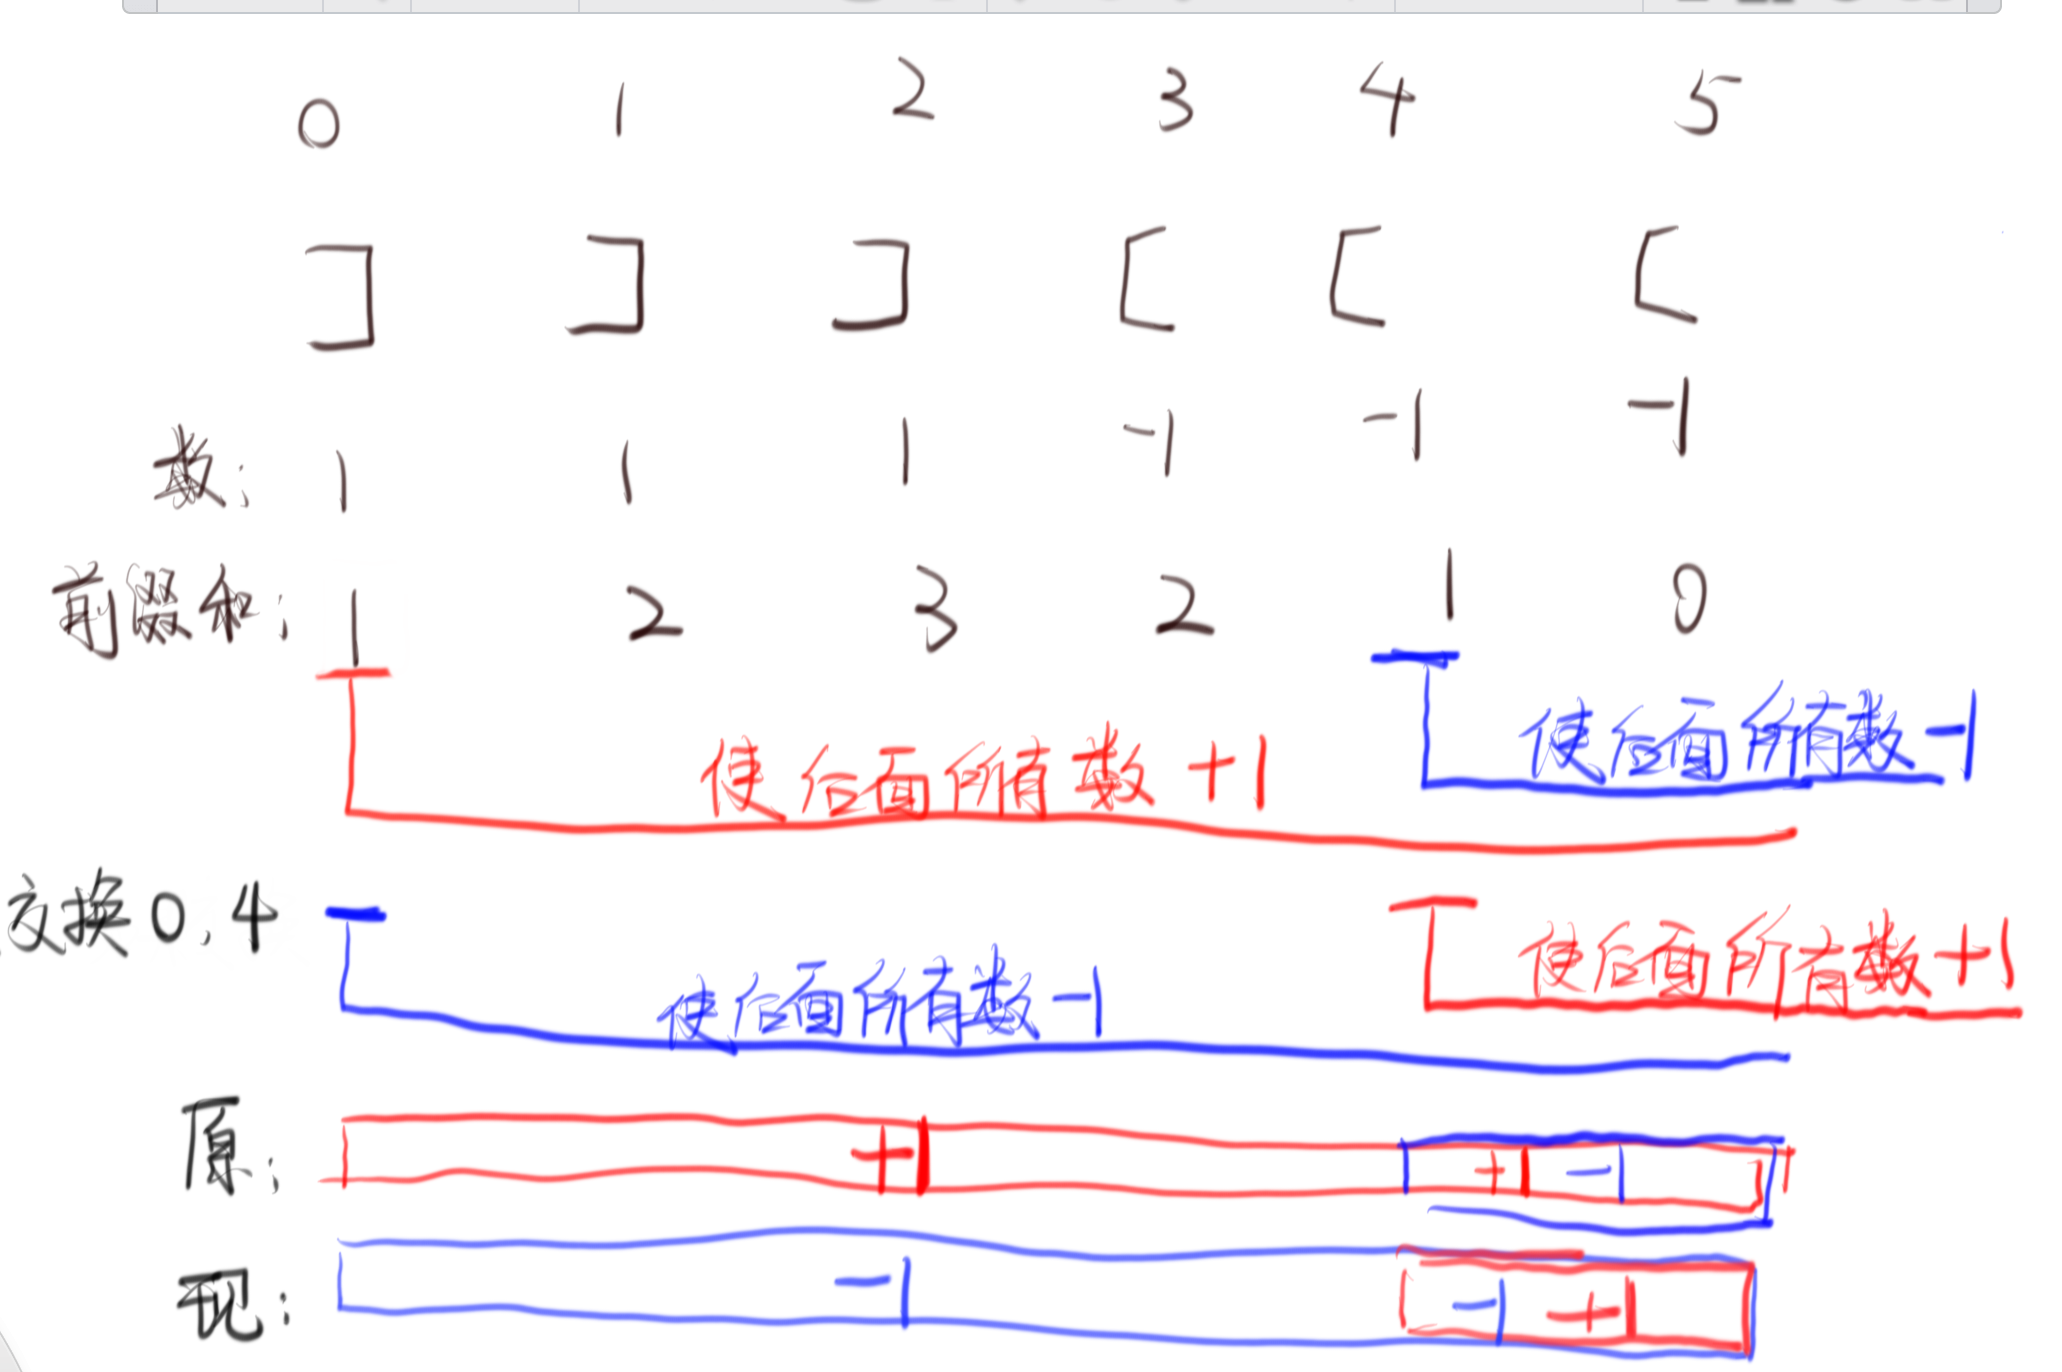 0 1 2 3 4 5
] ] ] [ [ [
数: 1 1 1 -1 -1 -1
前缀和: 1 2 3 2 1 0
使后面所有数-1
使后面所有数+1
交换0,4
使后面所有数+1
使后面所有数-1
原: +1 +1 -1
现: -1 -1 +1